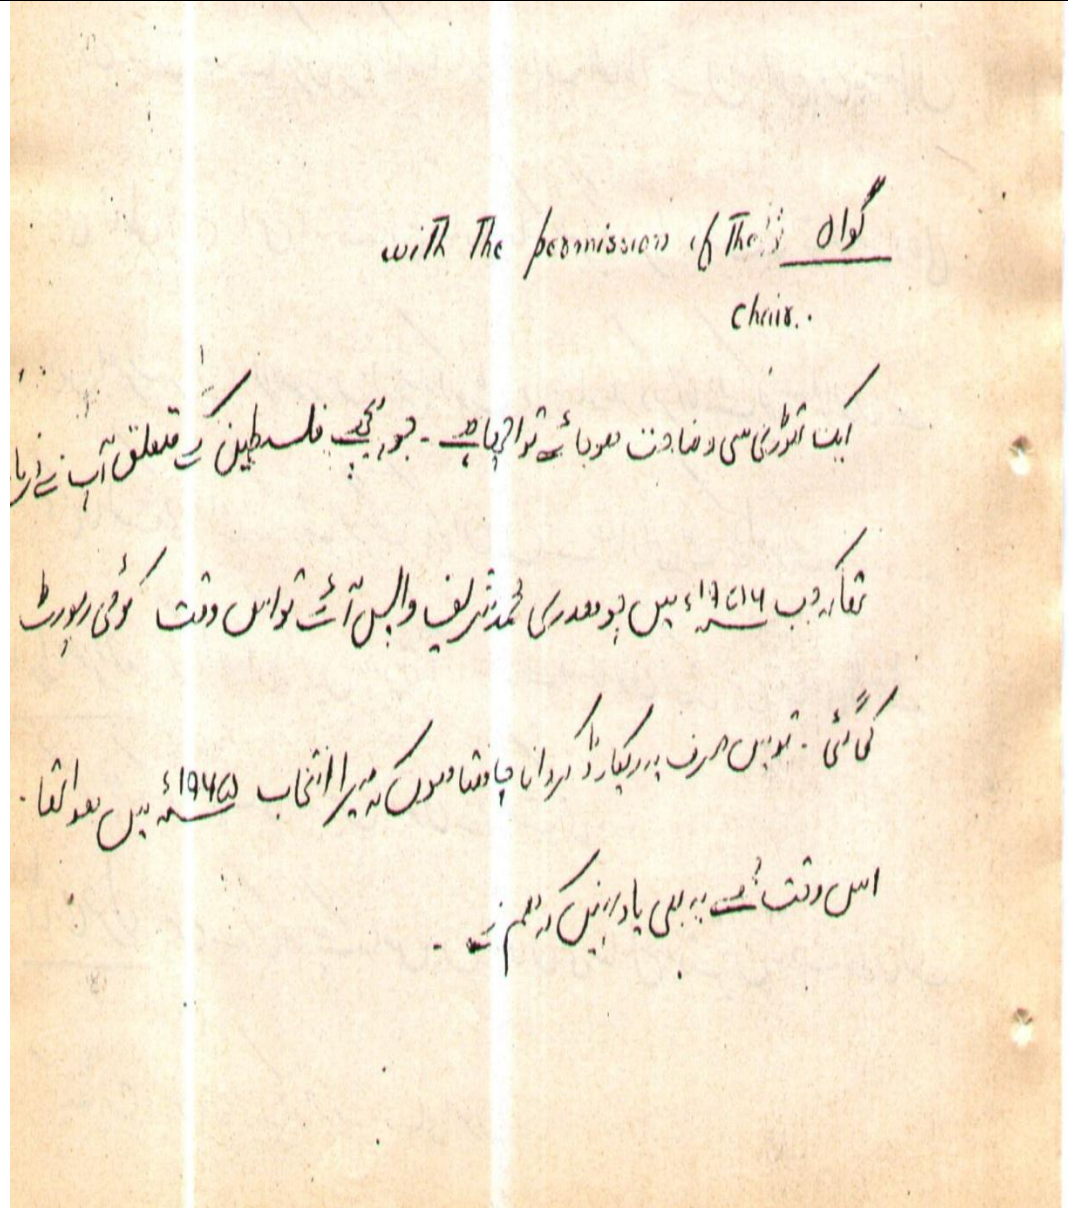 گواہ: with the permission of the
chair.
ایک تھوڑی سی وضاحت ہو جائے تو اچھا ہے۔ جو مجھے فلسطین کے متعلق آپ نے فرمایا
تھا کہ جب ۱۹۵۶ء میں چوہدری محمد شریف واپس آئے تو اس وقت کوئی رپورٹ
کی گئی۔ تو میں صرف یہ ریکارڈ کروانا چاہتا ہوں کہ میرا انتخاب ۱۹۶۵ء میں ہوا تھا۔
اس وقت مجھے یہ بھی یاد نہیں کہ ہم نے۔